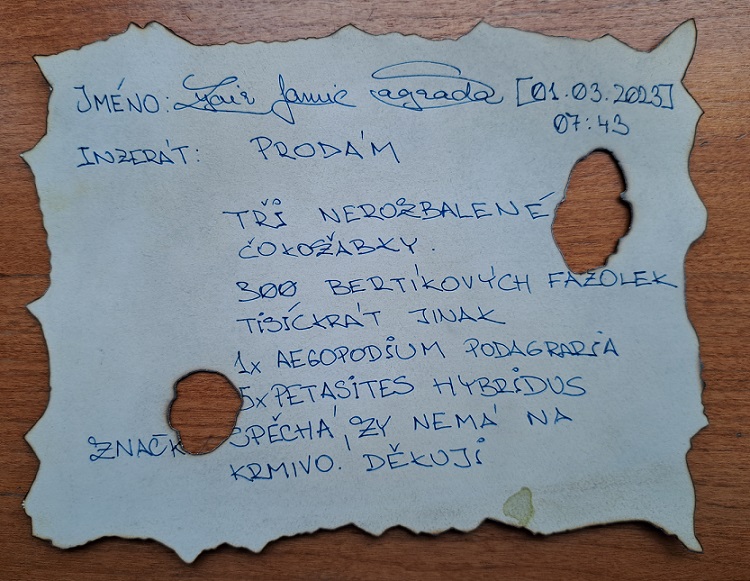 JMÉNO: Jamie agrada [01.03.2023]
07:43
INZERÁT: PRODÁM
TŘI NEROZBALENÉ
ČOKOŽABKY.
300 BERTÍKOVÝCH FAZOLEK
TISÍCKRÁT JINAK
1x AEGOPODIUM PODAGRARIA
5x PETASITES HYBRIDUS
ZNAČK SPĚCHÁ, ZY NEMÁ NA
KRMIVO. DĚKUJI